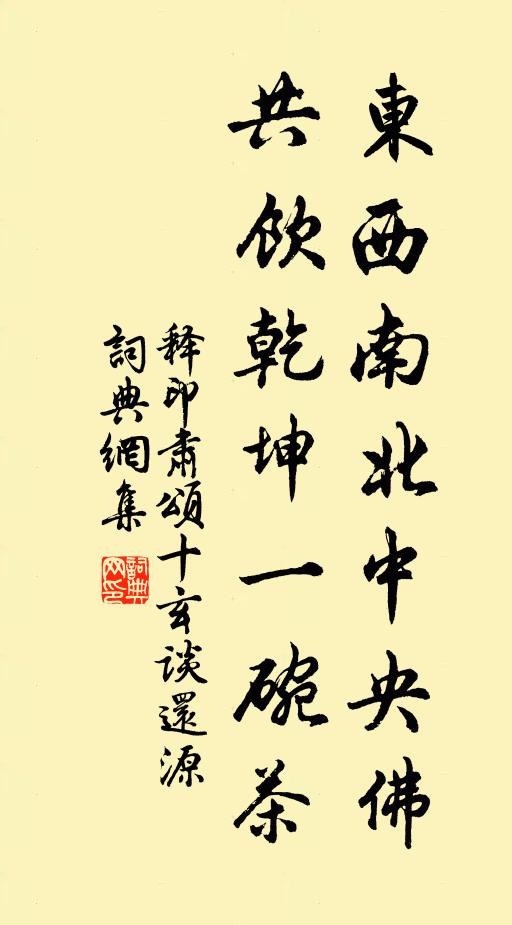 東西南北中央佛
共飲乾坤一碗茶
释印肅頌十玄谈還源
詞典網集
詞典網印